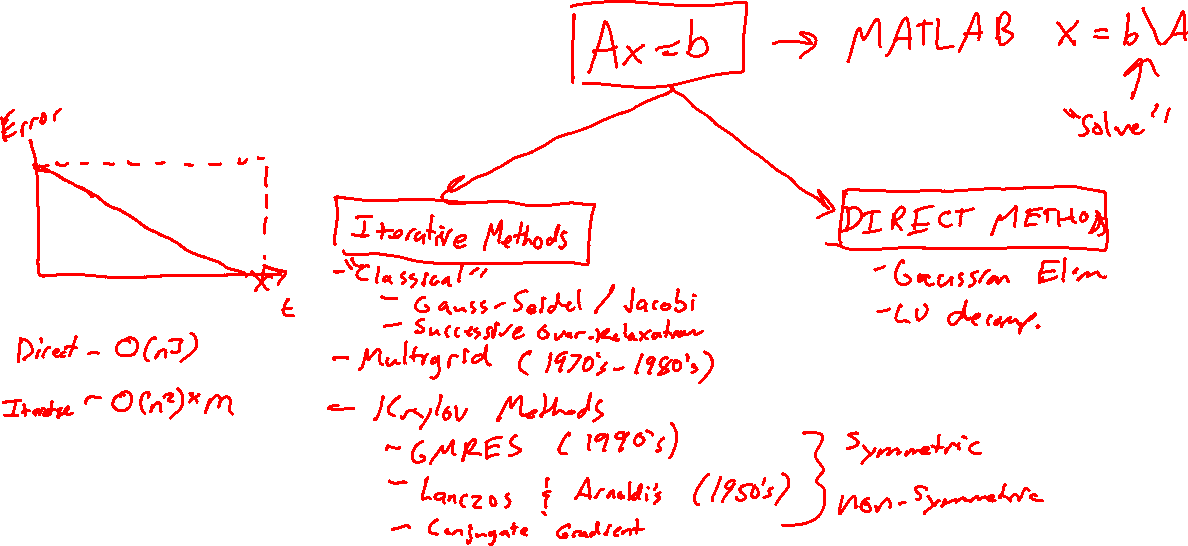 Ax=b → MATLAB x = b\A
"Solve"
Error
t
Direct - O(n3)
O(n²)*m
Iterative Methods
-"Classical"
- Gauss-Seidel / Jacobi
- Successive Over-Relaxation
- Multigrid (1970's-1980's)
- Krylov Methods
- GMRES (1990's)
- Lanczos & Arnoldi's (1950's)
- Conjugate Gradient
symmetric
non-symmetric
DIRECT METHODS
- Gaussian Elim
- LU decomp.